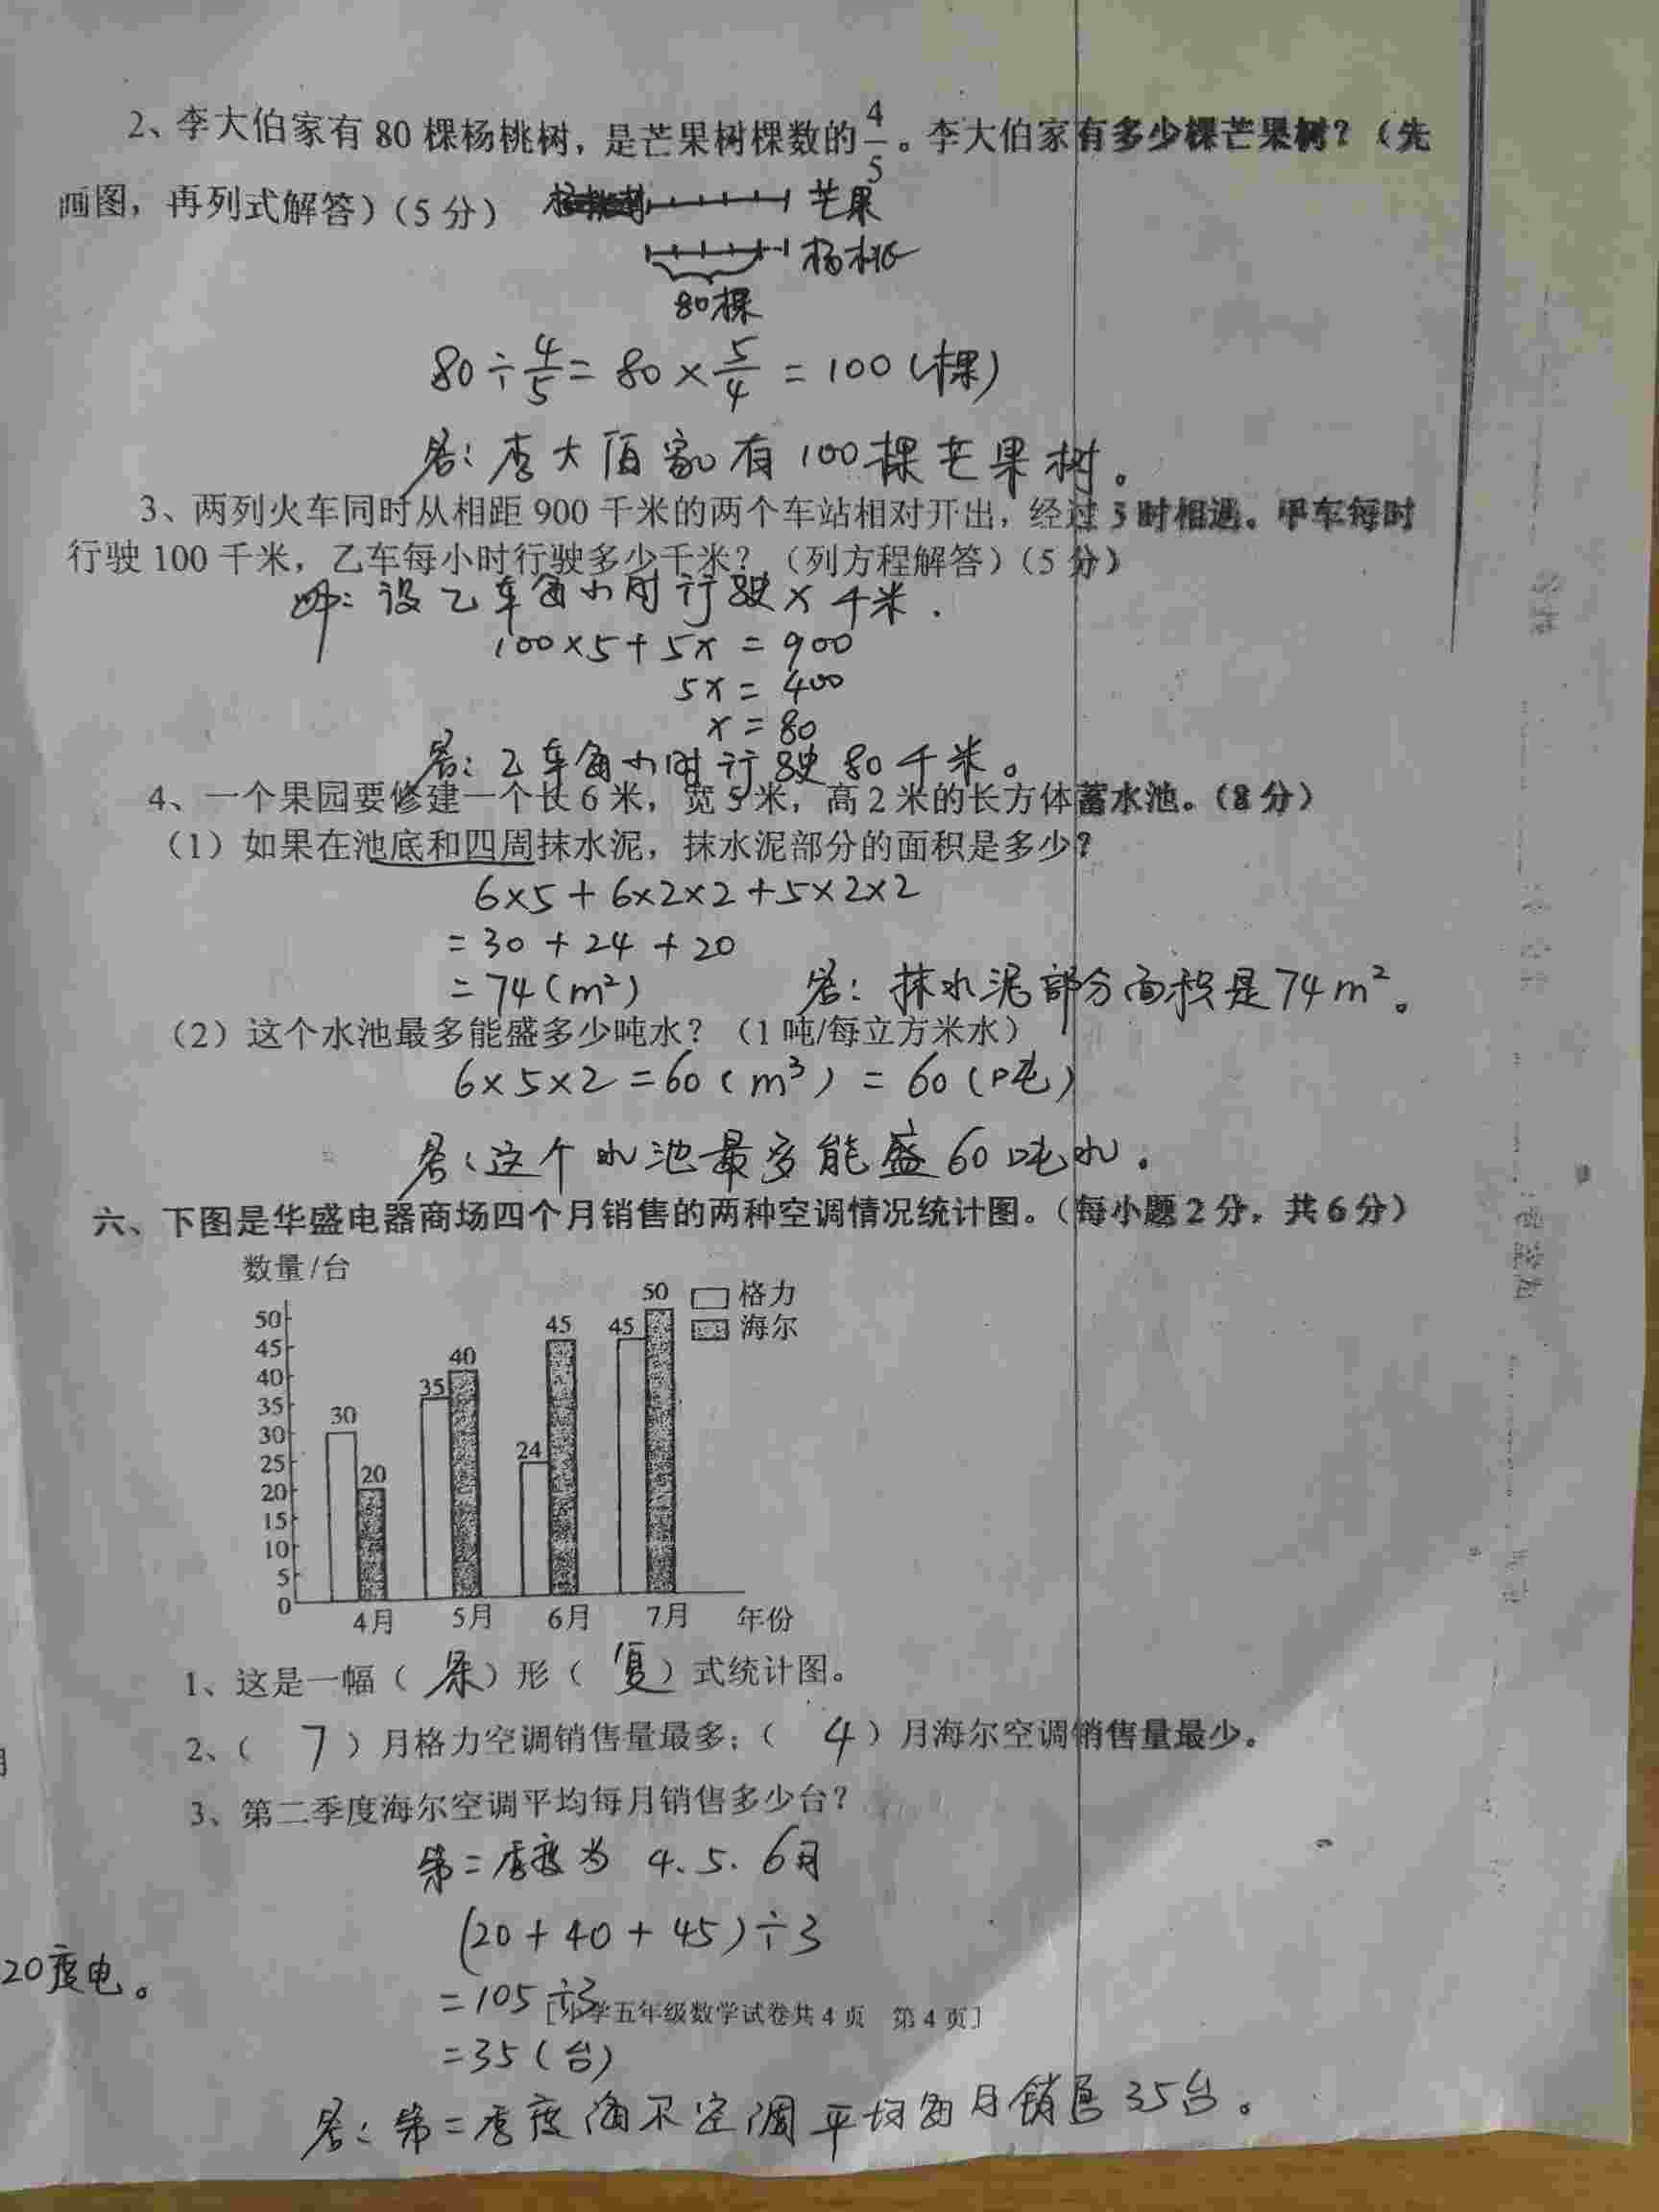 2、李大伯家有 80 棵杨桃树，是芒果树棵数的 4/5 。李大伯家有多少棵芒果树？（先
画图，再列式解答）（5 分）
芒果
杨桃
80棵
80÷4/5=80×5/4=100(棵)
答：李大伯家有100棵芒果树。
3、两列火车同时从相距 900 千米的两个车站相对开出，经过 5 时相遇。甲车每时
行驶 100 千米，乙车每小时行驶多少千米？（列方程解答）（5 分）
解：设乙车每小时行驶x千米.
100×5+5x=900
5x=400
x=80
答：乙车每小时行驶80千米。
4、一个果园要修建一个长 6 米，宽 5 米，高 2 米的长方体蓄水池。（8 分）
（1）如果在池底和四周抹水泥，抹水泥部分的面积是多少？
6×5+6×2×2+5×2×2
=30+24+20
=74(m²) 答：抹水泥部分面积是74m²。
（2）这个水池最多能盛多少吨水？（1 吨/每立方米水）
6×5×2=60(m³)=60(吨)
答：这个水池最多能盛60吨水.
六、下图是华盛电器商场四个月销售的两种空调情况统计图。（每小题 2 分，共 6 分）
数量/台
格力
海尔
50
45
40
35
30
25
20
15
10
5
0
30 20 35 40 24 45 45 50
4月 5月 6月 7月 年份
1、这是一幅（ 条 ）形（ 复 ）式统计图。
2、（ 7 ）月格力空调销售量最多；（ 4 ）月海尔空调销售量最少。
3、第二季度海尔空调平均每月销售多少台？
第二季度为 4.5.6月
(20+40+45)÷3
20度电。
=105÷3
[小学五年级数学试卷共 4 页 第 4 页]
=35(台)
答：第二季度海尔空调平均每月销售35台。